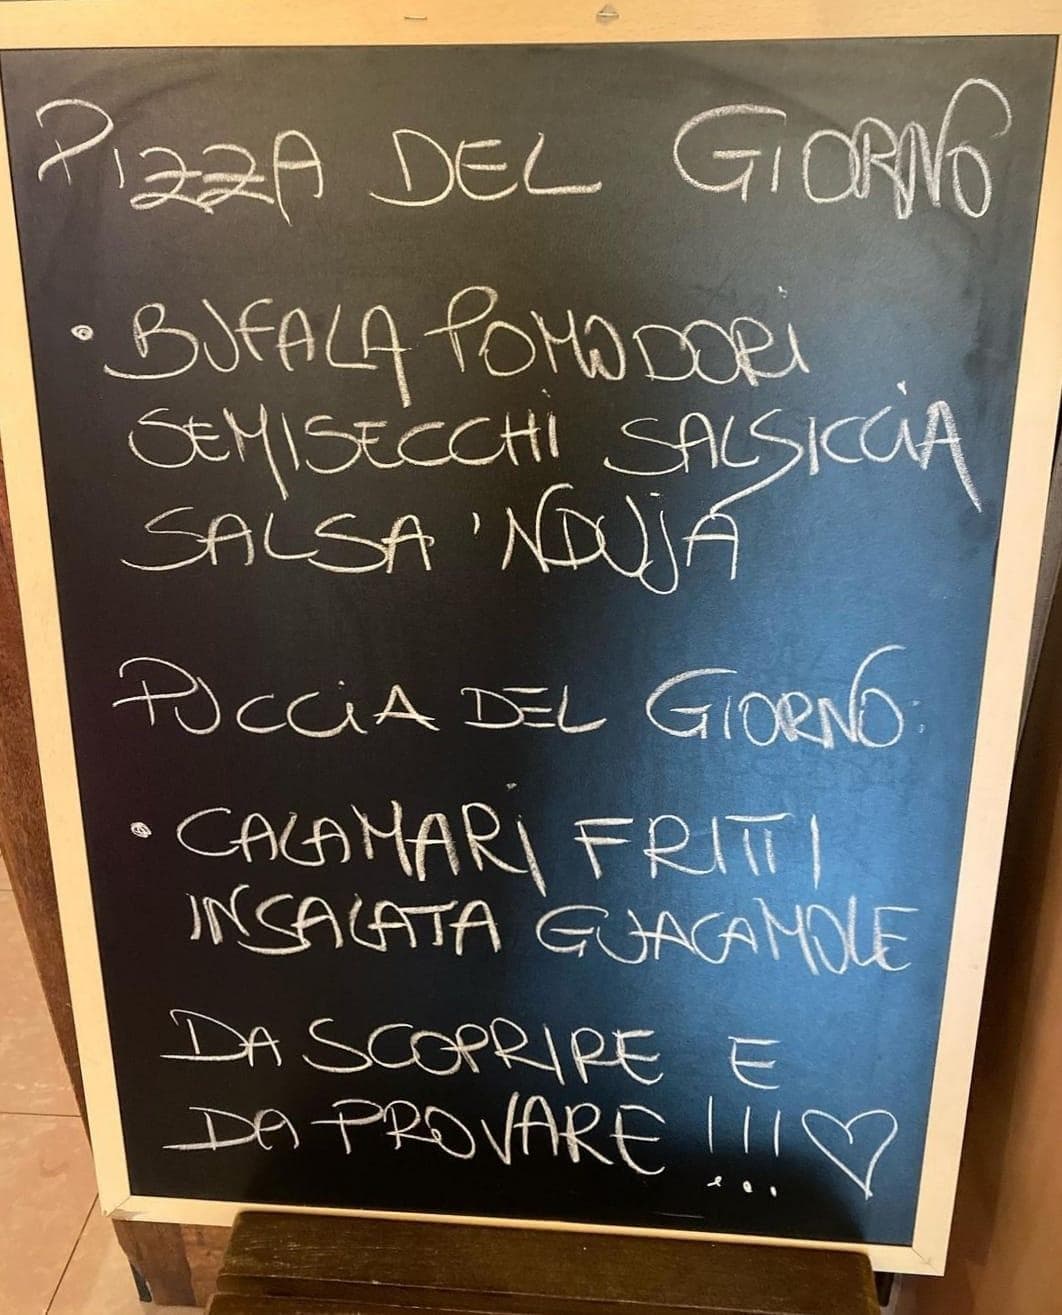 PIZZA DEL GIORNO
• BUFALA POMODORI
SEMISECCHI SALSICCIA
SALSA 'NDUJA
PUCCIA DEL GIORNO:
• CALAMARI FRITTI
INSALATA GUACAMOLE
DA SCOPRIRE E
DA PROVARE !!! ♡